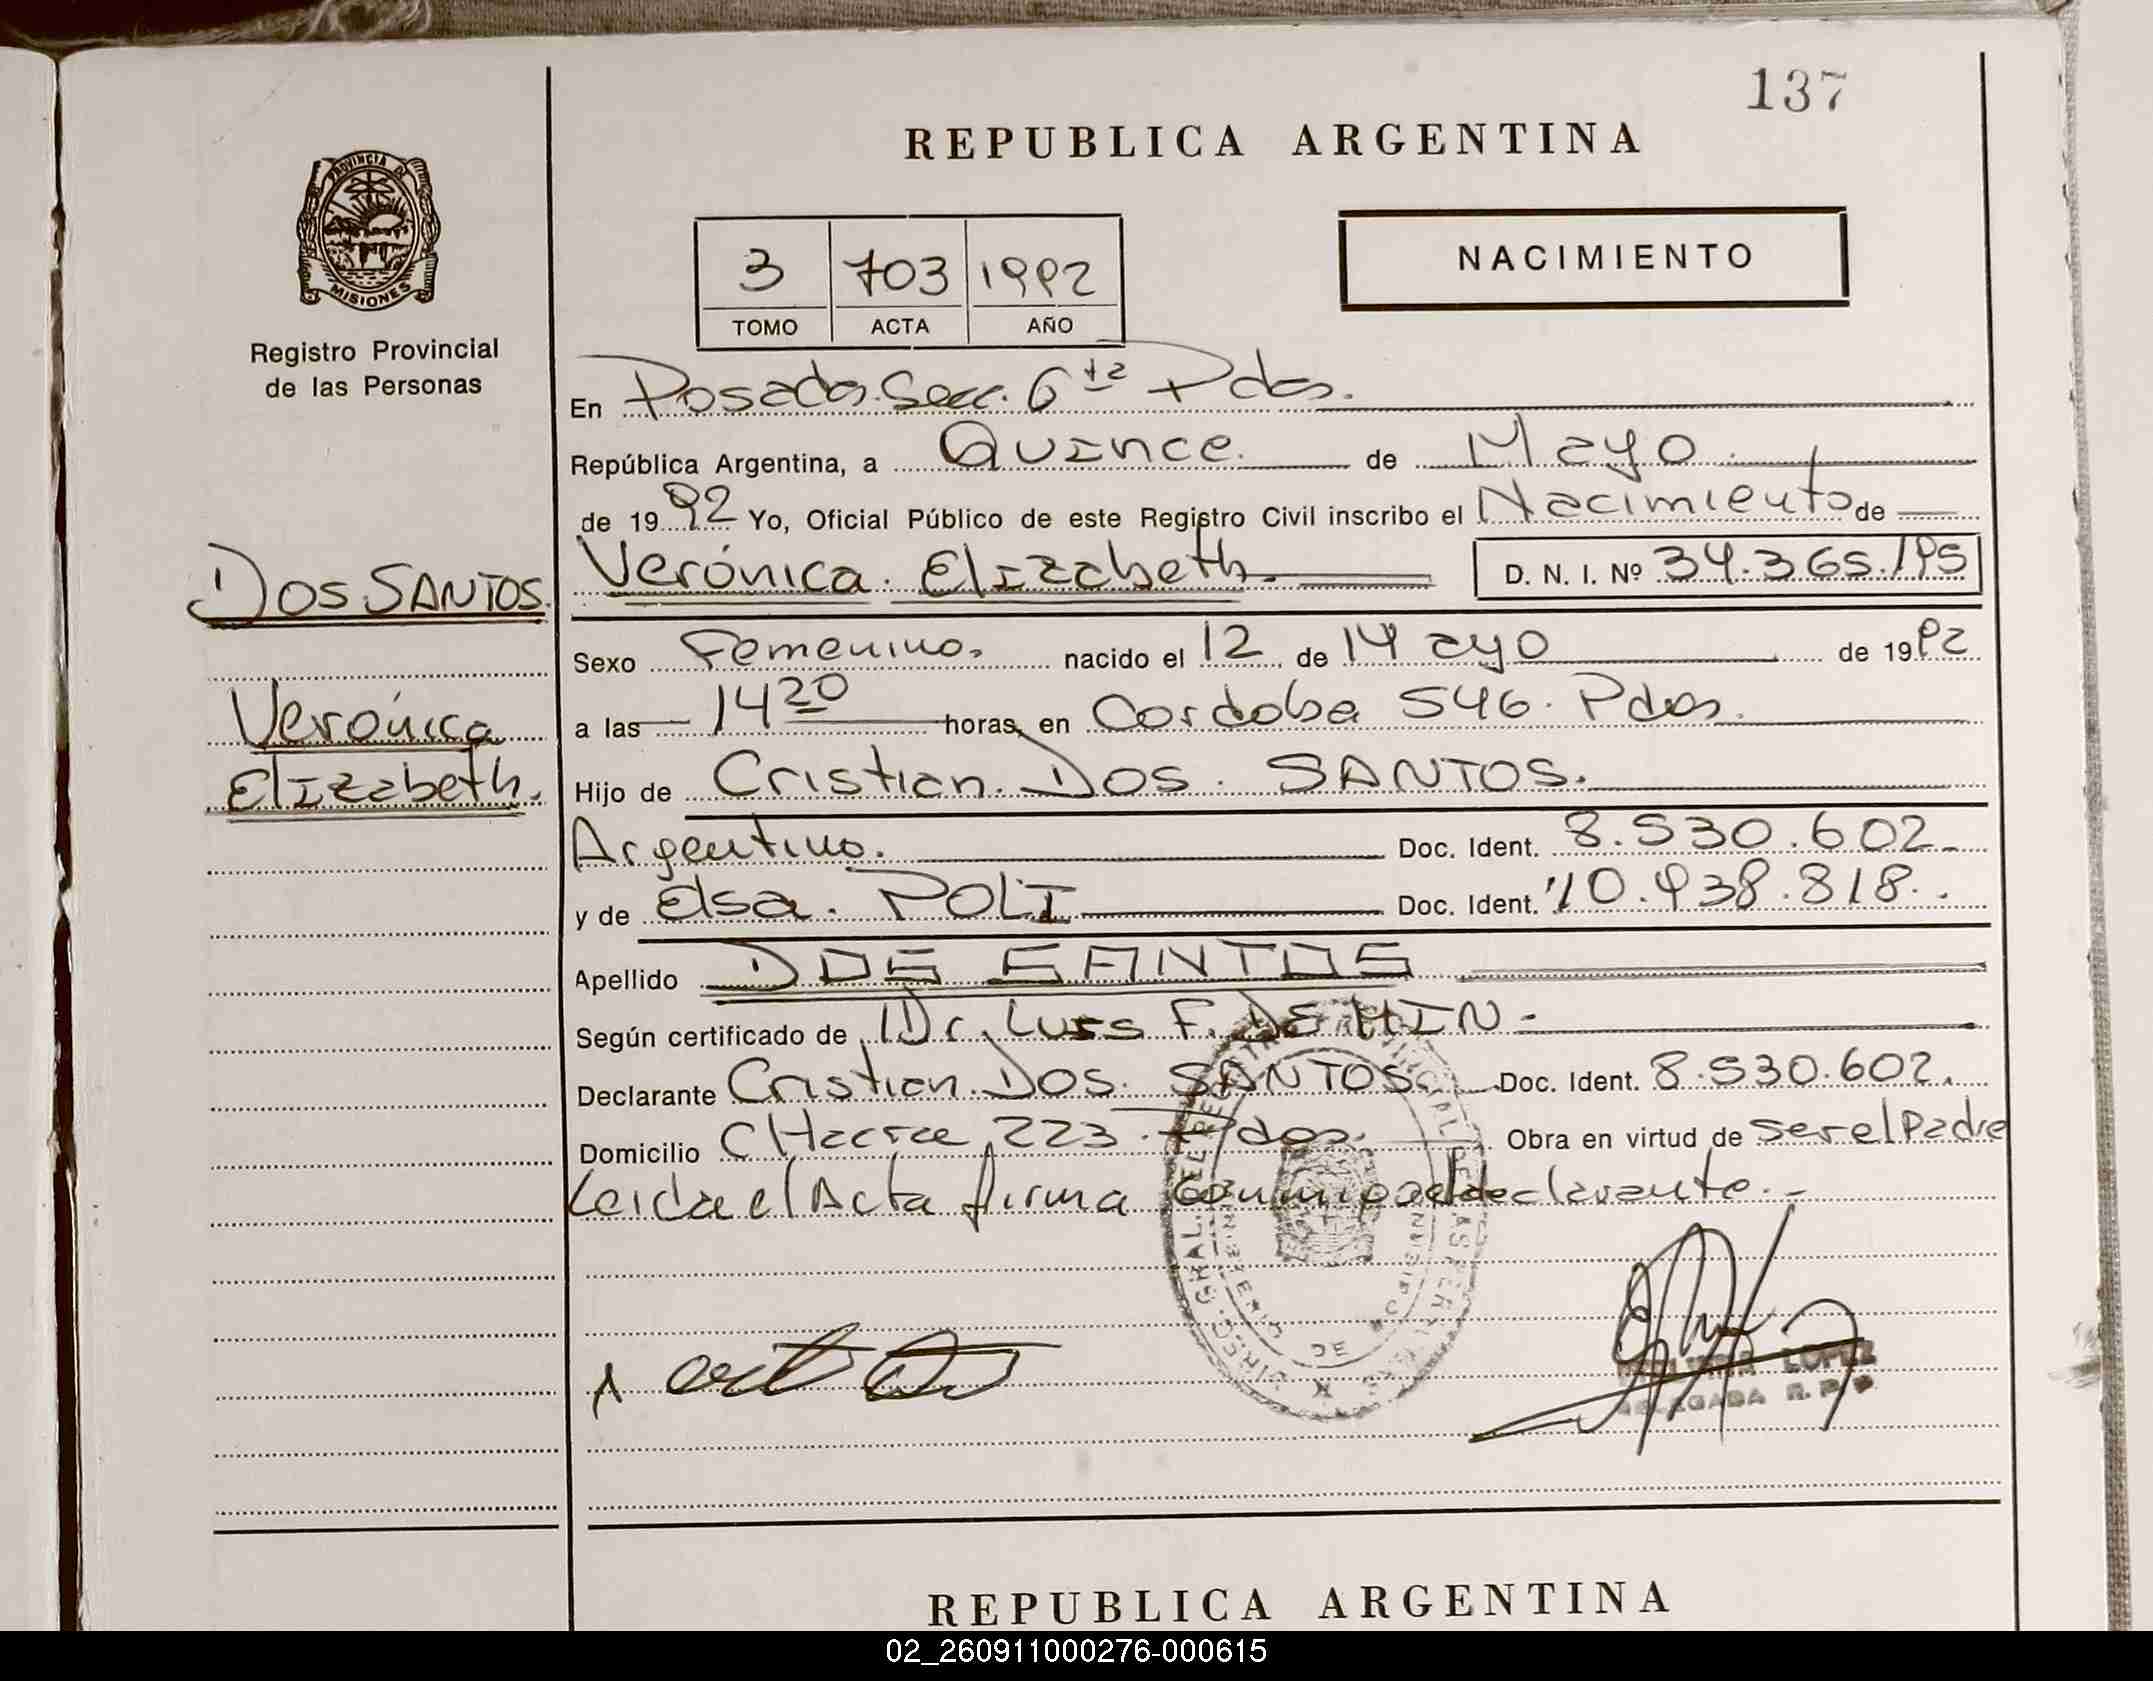 137
REPUBLICA ARGENTINA
PROVINCIA DE
MISIONES
Registro Provincial
de las Personas
NACIMIENTO
3 703 1992
TOMO ACTA AÑO
En Posadas. Secc. 6ta Pdas.
República Argentina, a Quince. de Mayo.
de 1992 Yo, Oficial Público de este Registro Civil inscribo el Nacimiento de
Verónica. Elizabeth. D. N. I. Nº 34.365.195
DOS SANTOS.
Verónica
Elizabeth.
Sexo Femenino. nacido el 12 de Mayo de 1992
a las 14 20 horas, en Cordoba 546. Pdas.
Hijo de Cristian. DOS. SANTOS.
Argentino. Doc. Ident. 8.530.602.
y de Elsa. POLI Doc. Ident. 10.938.818.
Apellido DOS SANTOS
Según certificado de Dr. Luis F.
Declarante Cristian. DOS. SANTOS. Doc. Ident. 8.530.602.
Domicilio CHacra 223. Pdas. Obra en virtud de ser el Padre
Leida el Acta firma declarante.-
LOPEZ
DELEGADA R. P. P.
REPUBLICA ARGENTINA
02_260911000276-000615